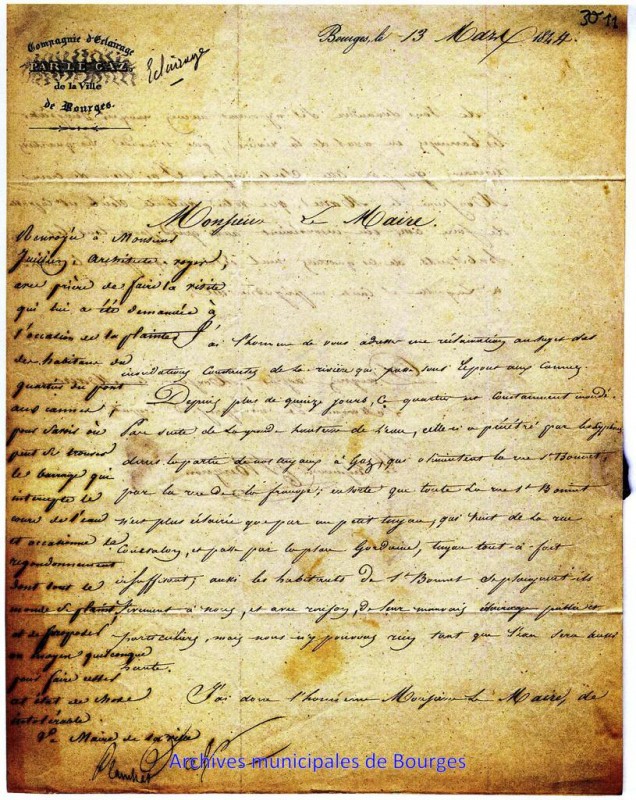 Compagnie d'Eclairage
PAR LE GAZ
de la Ville
de Bourges.
Eclairage
Bourges, le 13 Mars 1844.
30 11
Monsieur Le Maire.
Renvoyée à Monsieur
Jullien, architecte voyer,
avec prière de faire la visite
qui lui a été demandée à
l'occasion de la plainte
des habitans du
quartier du pont
aux cannes;
pour savoir où
peut se trouver
le barrage qui
intercepte le
cours de l'eau
et occasionne le
regondonnement
dont tout le
monde se plaint,
et de proposer
un moyen quelconque
pour faire cesser
cet état de chose
intolérable.
Le Maire de la ville
J'ai l'honneur de vous adresser une réclamation au sujet des
inondations constantes de la rivière qui passe sous le pont aux cannes.
Depuis plus de quinze jours, le quartier est constamment inondé.
Par suite de la grande hauteur de l'eau, celle-ci a pénétré par les syphons
dans la partie de nos tuyaux à Gaz, qui alimentent la rue St Bonnet
par la rue de la frange; ensorte que toute la rue St Bonnet
n'est plus éclairée que par un petit tuyau, qui vient de la rue
Coursalon, et passe par la place Gordaine, tuyau tout-à-fait
insuffisant; aussi les habitants de St Bonnet se plaignent ils
vivement à nous, et avec raison, de leur mauvais éclairage public et
particuliers, mais nous n'y pouvons rien tant que l'eau sera aussi
haute.
J'ai donc l'honneur Monsieur Le Maire, de
Archives municipales de Bourges